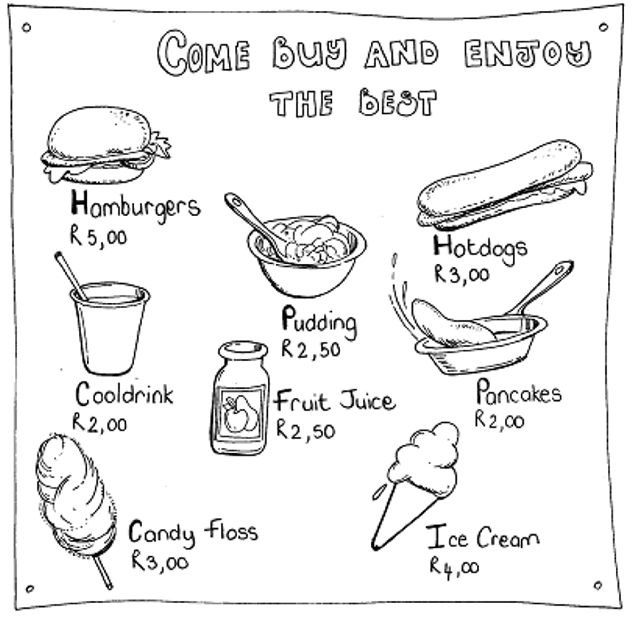 COME BUY AND ENJOY
THE BEST
Hamburgers
R5,00
Hotdogs
R3,00
Pudding
R2,50
Cooldrink
R2,00
Fruit Juice
R2,50
Pancakes
R2,00
Candy floss
R3,00
Ice Cream
R4,00